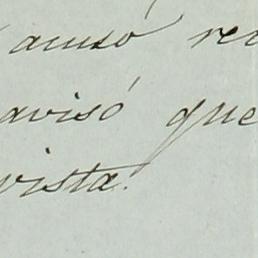 acusó re
avisó que
vista.